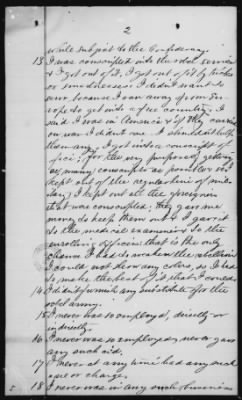 2
while subject to the Confederacy.
13 I was conscripted into the rebel service
& I got out of it. I got out of it by tricks
or smartness. I didn't want to
serve because I ran away from Eu-
rope to get into a free country. I
said I was in America & if they carried
on war I didn't care. I shouldn't help
them any. I got into a conscript of-
fice; for the very purpose of getting
as many conscripts as possible
kept out of the regulations of mili-
tary; I kept out all the foreigners
that was conscripted; they gave me
money to keep them out & I gave it
to the medical examiners & to the
enrolling officers; that is the only
chance I had to weaken the rebellion
I could not show any colors, so I had
to make the best of it that I could.
14 I didn't furnish any substitute for the
rebel army.
15 I never was so employed, directly or
indirectly.
16 I never was so employed, never gave
any such aid.
17 I never at any time had any such
care or charge.
18 I never was in any such